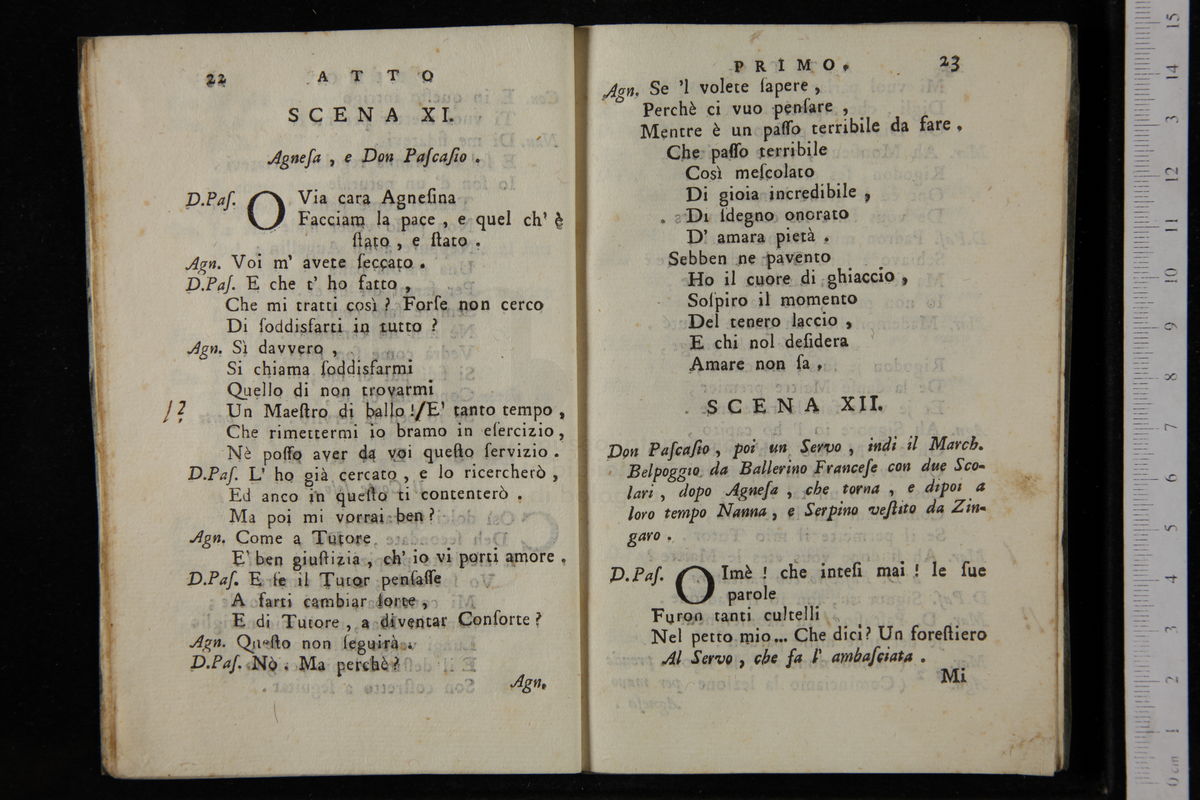 22 ATTO
SCENA XI.
Agneſa , e Don Paſcaſio .
D.Paſ. O Via cara Agneſina
Facciam la pace , e quel ch' è
ſtato , e ſtato .
Agn. Voi m' avete ſeccato .
D.Paſ. E che t' ho fatto ,
Che mi tratti così ? Forſe non cerco
Di ſoddisfarti in tutto ?
Agn. Sì davvero ,
Si chiama ſoddisfarmi
Quello di non trovarmi
!? Un Maeſtro di ballo !/E' tanto tempo ,
Che rimettermi io bramo in eſercizio ,
Nè poſſo aver da voi queſto ſervizio .
D.Paſ. L' ho già cercato , e lo ricercherò ,
Ed anco in queſto ti contenterò .
Ma poi mi vorrai ben ?
Agn. Come a Tutore
E' ben giuſtizia , ch' io vi porti amore .
D.Paſ. E ſe il Tutor penſaſſe
A farti cambiar ſorte ,
E di Tutore , a diventar Conſorte ?
Agn. Queſto non ſeguirà .
D.Paſ. Nò . Ma perchè ?
Agn.
PRIMO. 23
Agn. Se 'l volete ſapere ,
Perchè ci vuo penſare ,
Mentre è un paſſo terribile da fare .
Che paſſo terribile
Così meſcolato
Di gioia incredibile ,
Di ſdegno onorato
D' amara pietà .
Sebben ne pavento
Ho il cuore di ghiaccio ,
Soſpiro il momento
Del tenero laccio ,
E chi nol deſidera
Amare non ſa .
SCENA XII.
Don Paſcaſio , poi un Servo , indi il March.
Belpoggio da Ballerino Franceſe con due Sco-
lari , dopo Agneſa , che torna , e dipoi a
loro tempo Nanna , e Serpino veſtito da Zin-
garo .
D.Paſ. O Imè ! che inteſi mai ! le ſue
parole
Furon tanti cultelli
Nel petto mio... Che dici ? Un foreſtiero
Al Servo , che fa l' ambaſciata .
Mi
15
14
3
12
11
10
9
8
7
6
5
4
3
2
1
0 cm